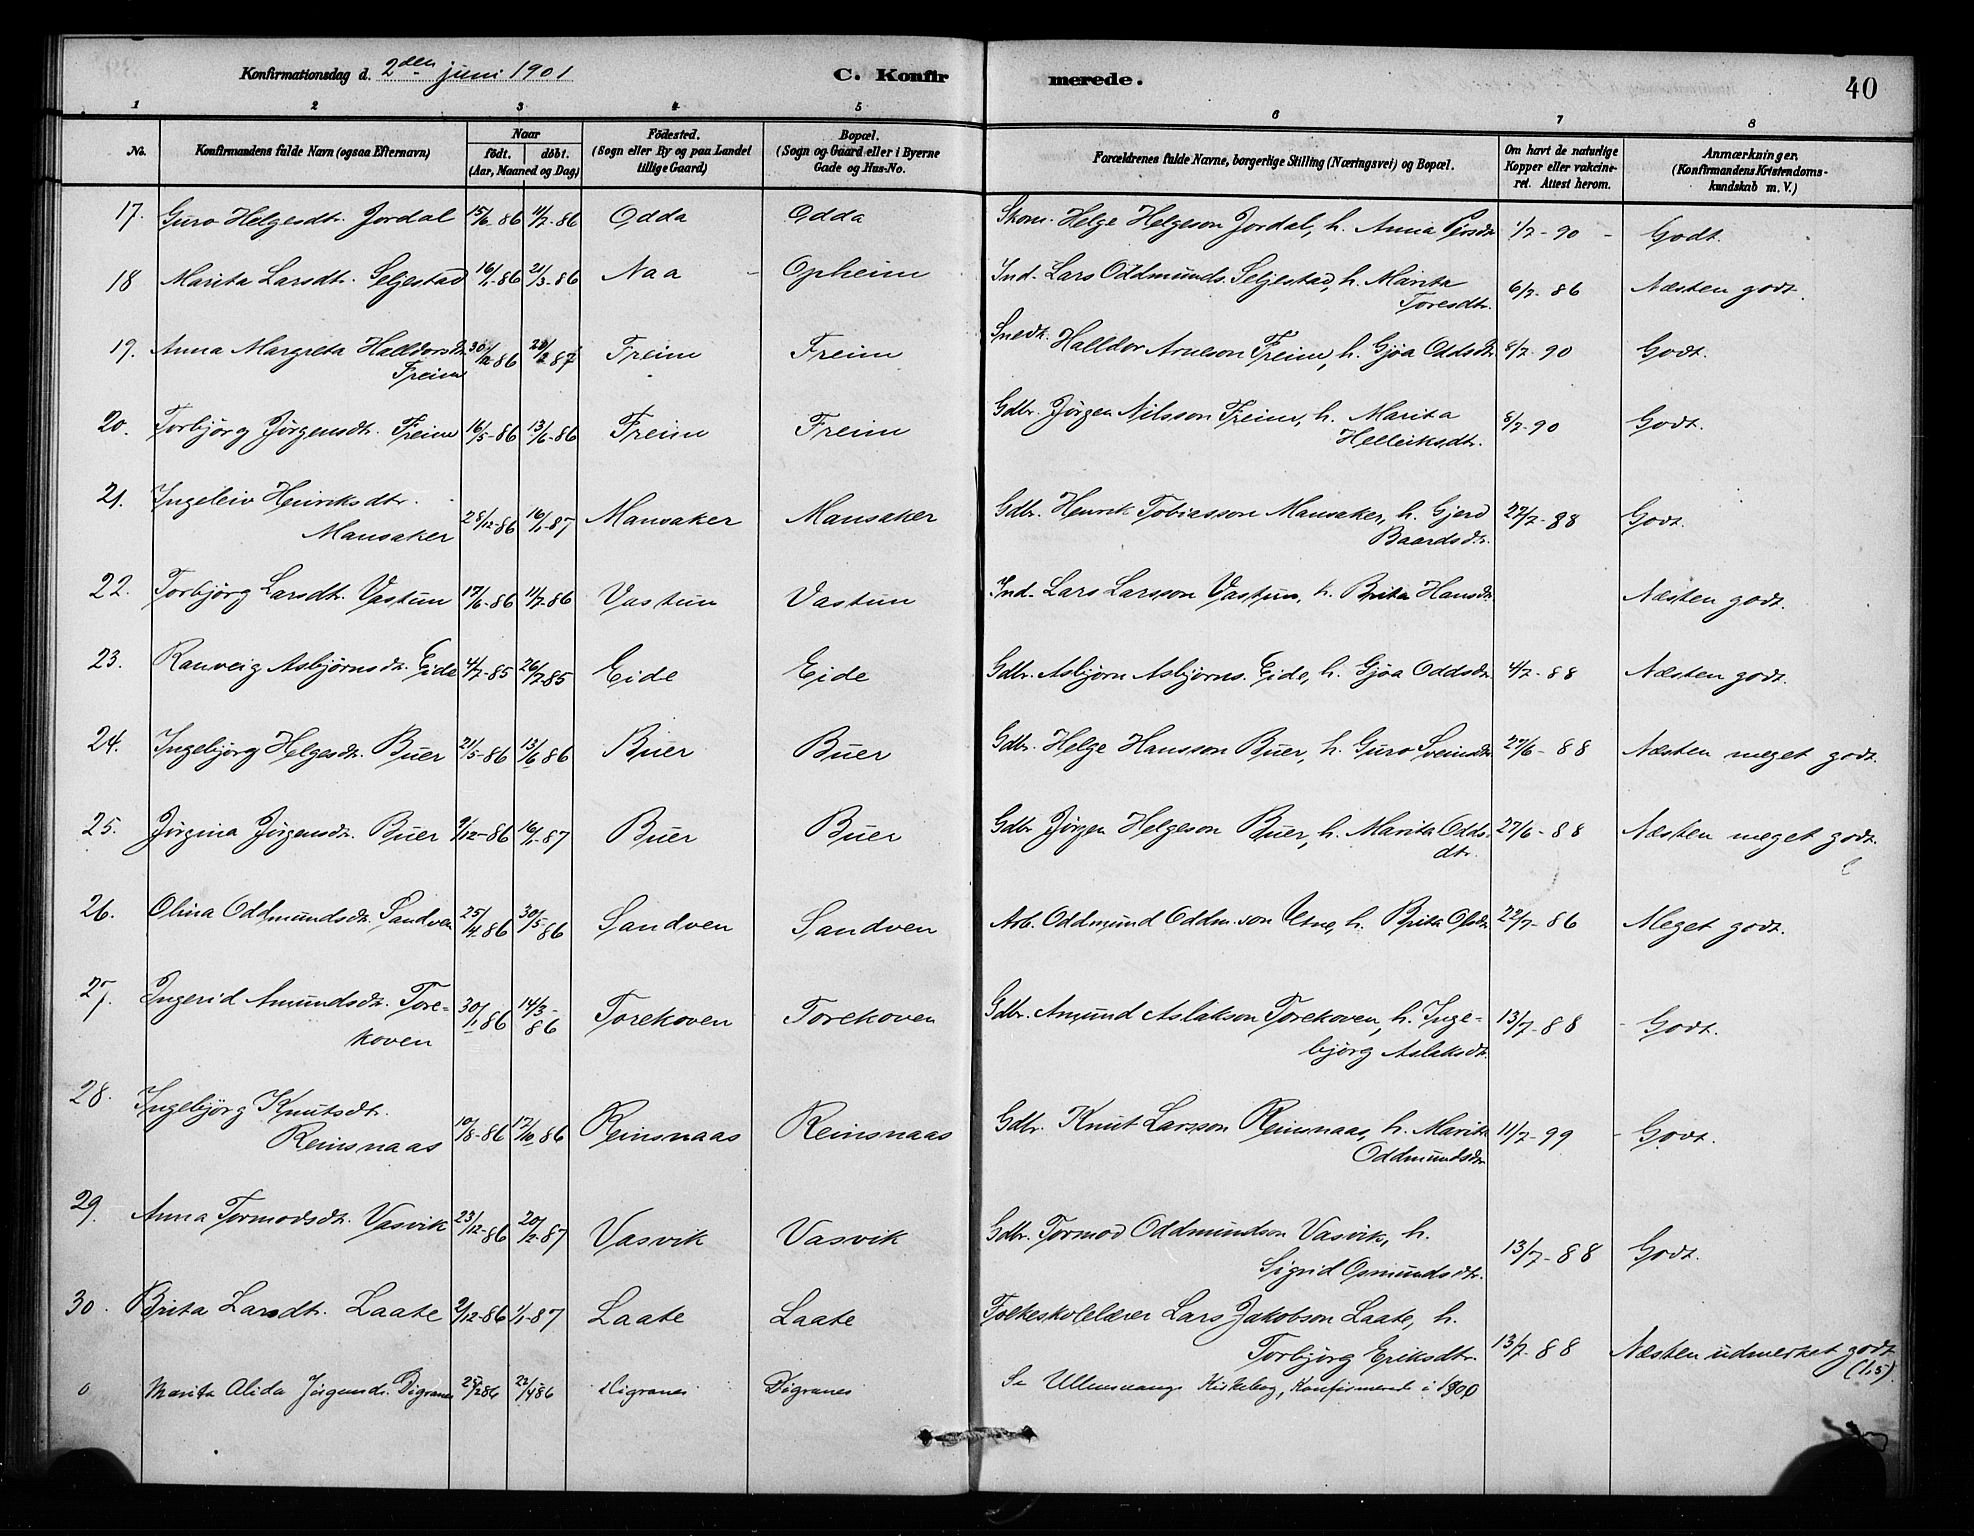 Konfirmationsdag d. 2den juni 1901 C. Konfirmerede. 40
1 2 3 4 5 6 7 8
No. Konfirmandens fulde Navn (ogsaa Efternavn) Naar födt. döbt. (Aar, Maaned og Dag) Födested. (Sogn eller By og paa Landet tillige Gaard) Bopæl. (Sogn og Gaard eller i Byerne Gade og Hus-No. Forældrenes fulde Navne, borgerlige Stilling (Næringsvei) og Bopæl. Om havt de naturlige Kopper eller vakcineret. Attest herom. Anmærkninger. (Konfirmandens Kristendomskundskab m. V.)
17. Guro Helgesdtr. Jordal 15/6-86 11/7-86 Odda Odda Skom. Helge Helgeson Jordal, h. Anna Persdtr 1/7-90 - Godt.
18 Marita Larsdtr. Seljestad 16/1-86 21/3-86 Naa - Opheim Ind. Lars Oddmunds. Seljestad, h. Marita Toresdtr. 6/7-86 Næsten godt.
19. Anna Margreta Halldorsdtr. Freim 30/12-86 20/2-87 Freim Freim Snedk. Halldor Arneson Freim, h. Gjøa Oddsdtr 8/7-90 Godt.
20. Torbjörg Jörgensdtr. Freim 16/5-86 13/6-86 Freim Freim Gdbr. Jörgen Nilsson Freim, h. Marita Helleiksdtr. 8/7-90 Godt.
21. Ingeleiv Henriksdtr. Mansaker 28/12-86 16/1-87 Mansaker Mansaker Gdbr. Henrik Tobiasson Mansaker, h. Gjerd Baardsdtr. 27/7-88 Godt.
22. Torbjörg Larsdtr. Vastun 17/6-86 11/7-86 Vastun Vastun Ind. Lars Larsson Vastun, h. Brita Hansdtr Næsten godt.
23. Ranveig Asbjørnsdtr. Eide 4/7-85 26/7-85 Eide Eide Gdbr. Asbjørn Asbjørns. Eide, h. Gjøa Oddsdtr 4/7-88 Næsten godt.
24. Ingebjørg Helgesdtr. Buer 21/5-86 13/6-86 Buer Buer Gdbr. Helge Hansson Buer, h. Guro Sveinsdtr 27/6-88 Næsten meget godt.
25. Jørgina Jørgensdtr. Buer 9/12-86 16/1-87 Buer Buer Gdbr Jørgen Helgeson Buer, h. Marita Oddsdtr. 27/6-88 Næsten meget godt.
26. Olina Oddmundsdtr. Sandven 25/4-86 30/5-86 Sandven Sandven Arb. Oddmund Oddm.son Utne, h. Brita Olsdtr 22/7-86 Meget godt.
27. Ingerid Amundsdtr. Torekoven 30/1-86 14/3-86 Torekoven Torekoven Gdbr. Amund Aslakson Torekoven, h. Ingebjörg Aslaksdtr. 13/7-88 - Godt.
28. Ingebjörg Knutsdtr. Reinsnaas 10/8-86 17/10-86 Reinsnaas Reinsnaas Gdbr. Knut Larsson Reinsnaas, h. Marita Oddmundsdtr 11/7-99 - Godt.
29. Anna Tormodsdtr. Vasvik 23/12-86 20/2-87 Vasvik Vasvik Gdbr. Tormod Oddmundson Vasvik, h. Sigrid Osmundsdtr. 13/7-88 Godt.
30. Brita Larsdtr. Laate 2/12-86 1/1-87 Laate Laate Folkeskolelærer Lars Jakobson Laate, h. Torbjörg Eriksdtr. 13/7-88 Næsten udmerket godt (1,5).
0 Marita Alida Jörgensdr. Digranes 22/4 86 Digranes Digranes Se Ullensvangs Kirkebog, Konfirmerede i 1900